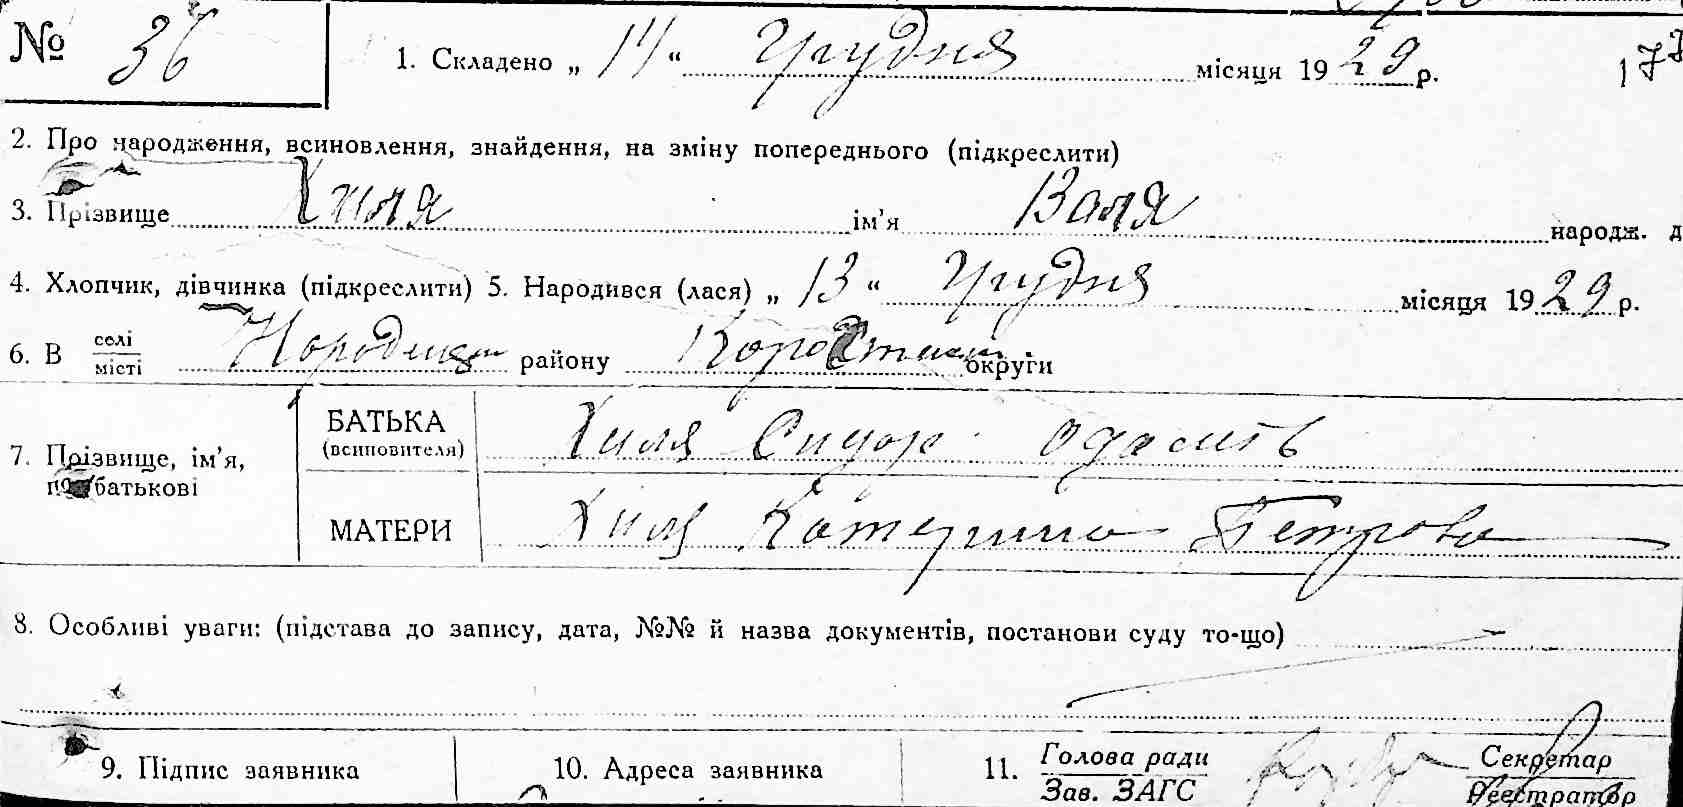 № 36
1. Складено „ 14 “ Грудня місяця 19 29 р. 177
2. Про народження, всиновлення, знайдення, на зміну попереднього (підкреслити)
3. Прізвище Хиля ім’я Валя народж. д
4. Хлопчик, дівчинка (підкреслити) 5. Народився (лася) „ 13 “ Грудня місяця 19 29 р.
6. В селі/місті району округи
7. Прізвище, ім’я, по батькові
БАТЬКА (всиновителя) Хиля Сидор
МАТЕРИ Хиля Катерина Петрова
8. Особливі уваги: (підстава до запису, дата, №№ й назва документів, постанови суду то-що)
9. Підпис заявника 10. Адреса заявника 11. Голова ради Секретар
Зав. ЗАГС Реєстратор